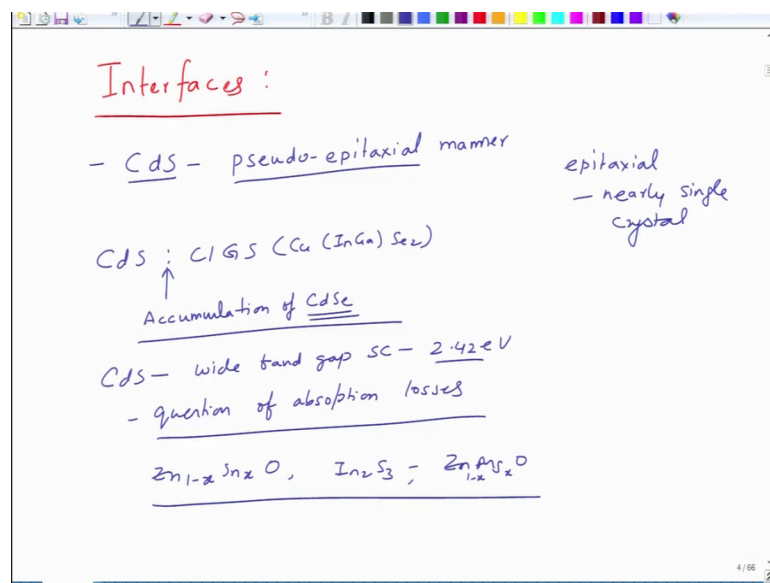 Interfaces :
- CdS - pseudo-epitaxial manner
epitaxial
- nearly single
crystal
CdS : CIGS (Cu (InGa) Se2)
↑
Accumulation of CdSe
CdS - wide band gap SC - 2.42 eV
- question of absorption losses
Zn1-x Snx O, In2 S3 - Zn1-x Mgx O
4 / 66